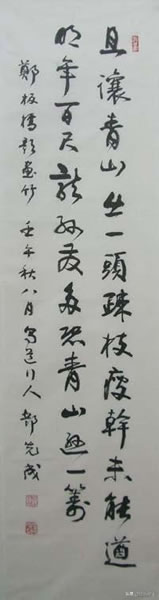 且讓青山出一頭疎枝瘦幹未能遒
明年百尺龍孫發多恐青山遜一籌
鄭板橋題畫竹 壬午秋八月